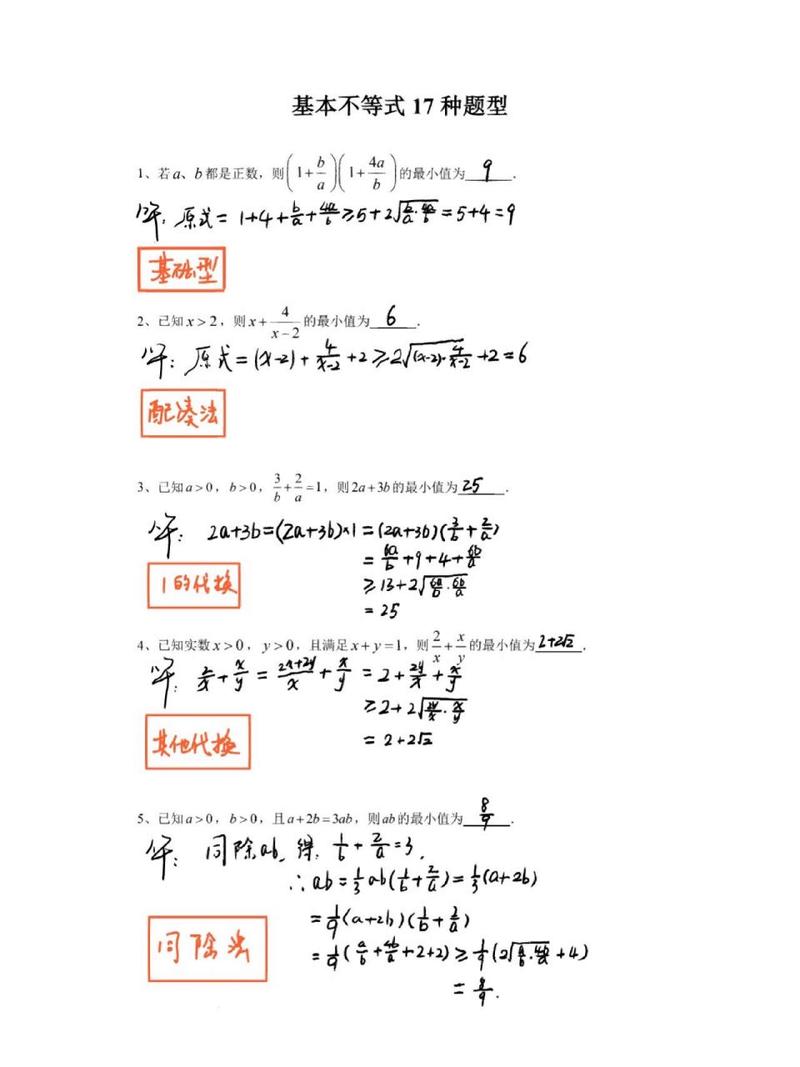 基本不等式 17 种题型
1、若a、b都是正数，则(1+b/a)(1+4a/b)的最小值为 9 .
解：原式=1+4+b/a+4a/b≥5+2√(b/a·4a/b)=5+4=9
基础型
2、已知x>2，则x+4/(x-2)的最小值为 6 .
解：原式=(x-2)+4/(x-2)+2≥2√((x-2)·4/(x-2))+2=6
配凑法
3、已知a>0，b>0，3/b+2/a=1，则2a+3b的最小值为 25 .
解：2a+3b=(2a+3b)×1=(2a+3b)(3/b+2/a)
=6a/b+9+4+6b/a
≥13+2√(6a/b·6b/a)
1的代换
=25
4、已知实数x>0，y>0，且满足x+y=1，则2/x+x/y的最小值为 2+2√2 .
解：2/x+x/y=(2x+2y)/x+x/y=2+2y/x+x/y
≥2+2√(2y/x·x/y)
其他代换
=2+2√2
5、已知a>0，b>0，且a+2b=3ab，则ab的最小值为 8/9 .
解：同除ab，得：1/b+2/a=3，
∴ab=1/3ab(1/b+2/a)=1/3(a+2b)
=1/9(a+2b)(1/b+2/a)
同除法
=1/9(a/b+4b/a+2+2)≥1/9(2√(a/b·4b/a)+4)
=8/9.